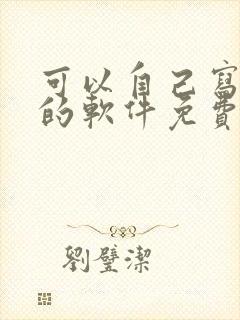 可以自己寫
的軟件免費
劉璧潔